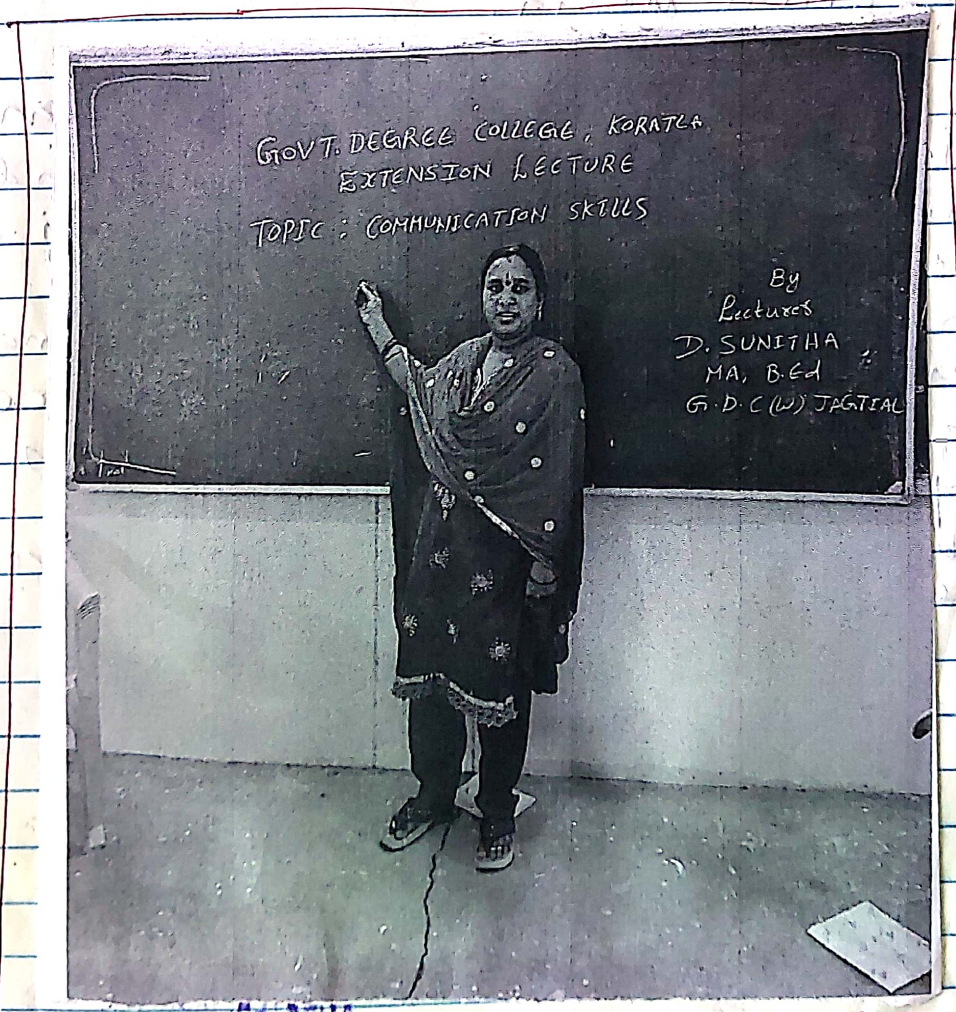 GOVT. DEGREE COLLEGE, KORATLA
EXTENSION LECTURE
TOPIC : COMMUNICATION SKILLS
By
Lecturer
D. SUNITHA
MA, B.Ed
G.D.C (W) JAGTIAL